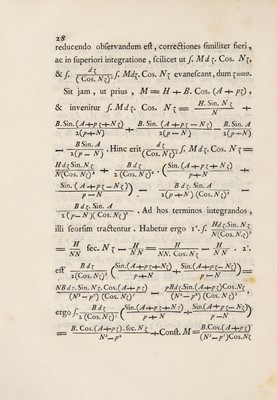 28
reducendo observandum est, correctiones similiter fieri,
ac in superiori integratione, scilicet ut ∫. M dζ. Cos. Nζ,
& ∫. dζ/(Cos. Nζ)² ∫. M dζ. Cos. Nζ evanescant, dum ζ=uno.
Sit jam, ut prius, M = H + B. Cos. (A + pζ),
& invenitur ∫. M dζ. Cos. Nζ = H. Sin. Nζ/N +
B. Sin. (A+pζ+Nζ)/2(p+N) + B. Sin. (A+pζ−Nζ)/2(p−N) − B. Sin. A/2(p+N)
− B Sin. A/2(p−N). Hinc erit dζ/(Cos. Nζ)² ∫. M dζ. Cos. Nζ =
H dζ Sin. Nζ/N(Cos. Nζ)² + B dζ/2(Cos. Nζ)² · (Sin. (A+pζ+Nζ)/p+N +
Sin. (A+pζ−Nζ)/p−N) − B dζ. Sin. A/2(p+N)(Cos. Nζ)² −
B dζ. Sin. A/2(p−N)(Cos. Nζ)². Ad hos terminos integrandos,
illi seorsim tractentur. Habetur ergo 1°. ∫. H dζ. Sin. Nζ/N(Cos. Nζ)²
= H/NN sec. Nζ − H/NN = H/NN. Cos. Nζ − H/NN. 2°.
est B dζ/2(Cos. Nζ)² (Sin. (A+pζ+Nζ)/p+N + Sin. (A+pζ−Nζ)/p−N) =
NB dζ. Sin. Nζ. Cos. (A+pζ)/(N²−p²)(Cos. Nζ)² − pB dζ. Sin. (A+pζ) Cos. Nζ/(N²−p²)(Cos. Nζ)²,
ergo ∫. B dζ/2(Cos. Nζ)² (Sin. (A+pζ+Nζ)/p+N + Sin. (A+pζ−Nζ)/p−N)
= B. Cos. (A+pζ). sec. Nζ/N²−p² + Const. M = B. Cos. (A+pζ)/(N²−p²) Cos. Nζ